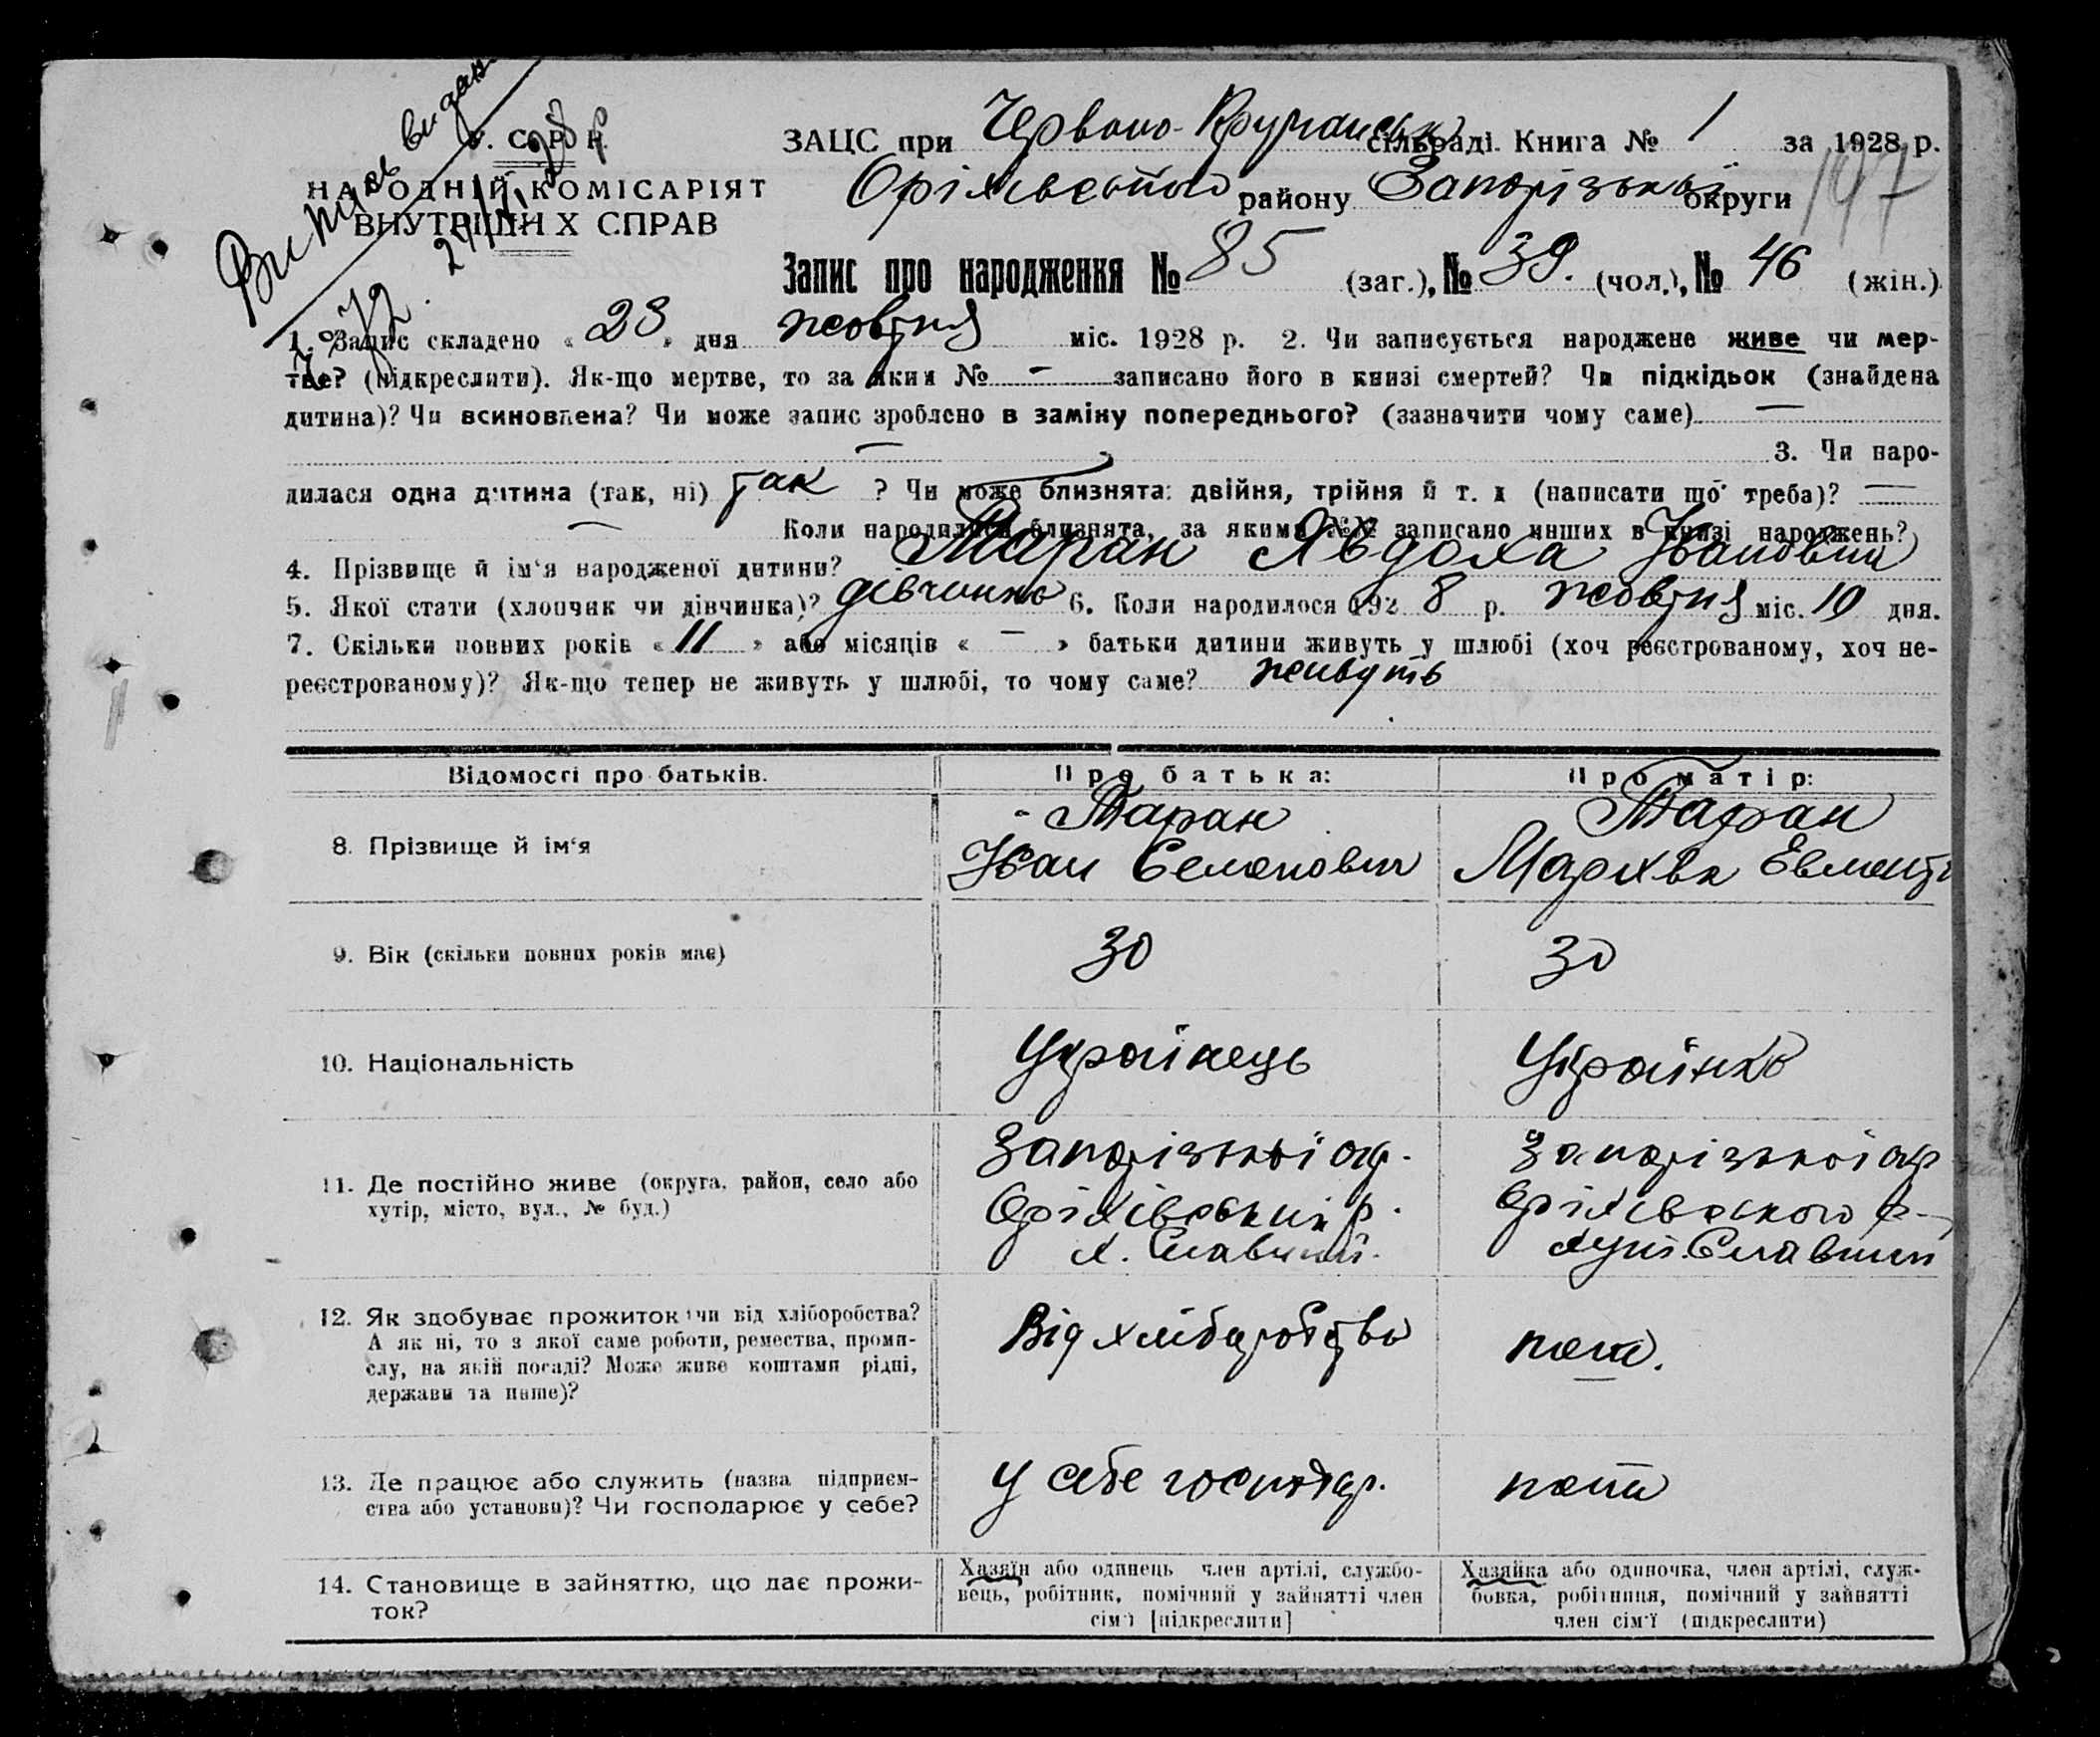 Випись видана
У. С. Р. Р.
НАРОДНІЙ КОМІСАРІЯТ
ВНУТРІШНІХ СПРАВ
ЗАЦС при Червоно- сільраді. Книга № 1 за 1928 р.
Оріхівського району Запорізької округи 197
Запис про народження № 85 (заг.), № 39. (чол.), № 46 (жін.)
1. Запис складено « 23 » дня жовтня міс. 1928 р. 2. Чи записується народжене живе чи мер-
тве? (підкреслити). Як-що мертве, то за яким № — записано його в книзі смертей? Чи підкідьок (знайдена
дитина)? Чи всиновлена? Чи може запис зроблено в заміну попереднього? (зазначити чому саме) —
— 3. Чи наро-
дилася одна дитина (так, ні) так ? Чи може близнята: двійня, трійня й т. д (написати що треба)? —
— Коли народилися близнята, за якими №№ записано инших в книзі народжень?
4. Прізвище й ім'я народженої дитини? Таран Явдоха Івановна
5. Якої стати (хлопчик чи дівчинка)? дівчинка 6. Коли народилося 192 8 р. жовтня міс. 19 дня.
7. Скільки повних років « 11 » або місяців « — » батьки дитини живуть у шлюбі (хоч реєстрованому, хоч не-
реєстрованому)? Як-що тепер не живуть у шлюбі, то чому саме? живуть
Відомості про батьків. Про батька: Про матір:
8. Прізвище й ім'я
Таран Таран
Іван Семенович Марихва
9. Вік (скільки повних років має) 30 30
10. Національність Українець Українка
11. Де постійно живе (округа, район, село або
хутір, місто, вул., № буд.)
Запорізької окр. Запорізької окр
Оріхівський р. Оріхівського р.
х. Славний. хут. Славний
12. Як здобуває прожиток чи від хліборобства?
А як ні, то з якої саме роботи, ремества, проми-
слу, на якій посаді? Може живе коштами рідні,
держави та инше)?
Від хліборобства теж.
13. Де працює або служить (назва підприєм-
ства або установи)? Чи господарює у себе?
у себе господар.
14. Становище в зайняттю, що дає прожи-
ток?
Хазяїн або одинець член артілі, службо-
вець, робітник, помічний у зайнятті член
сім'ї [підкреслити]
Хазяйка або одиночка, член артілі, служ-
бовка, робітниця, помічний у зайнятті
член сім'ї (підкреслити)